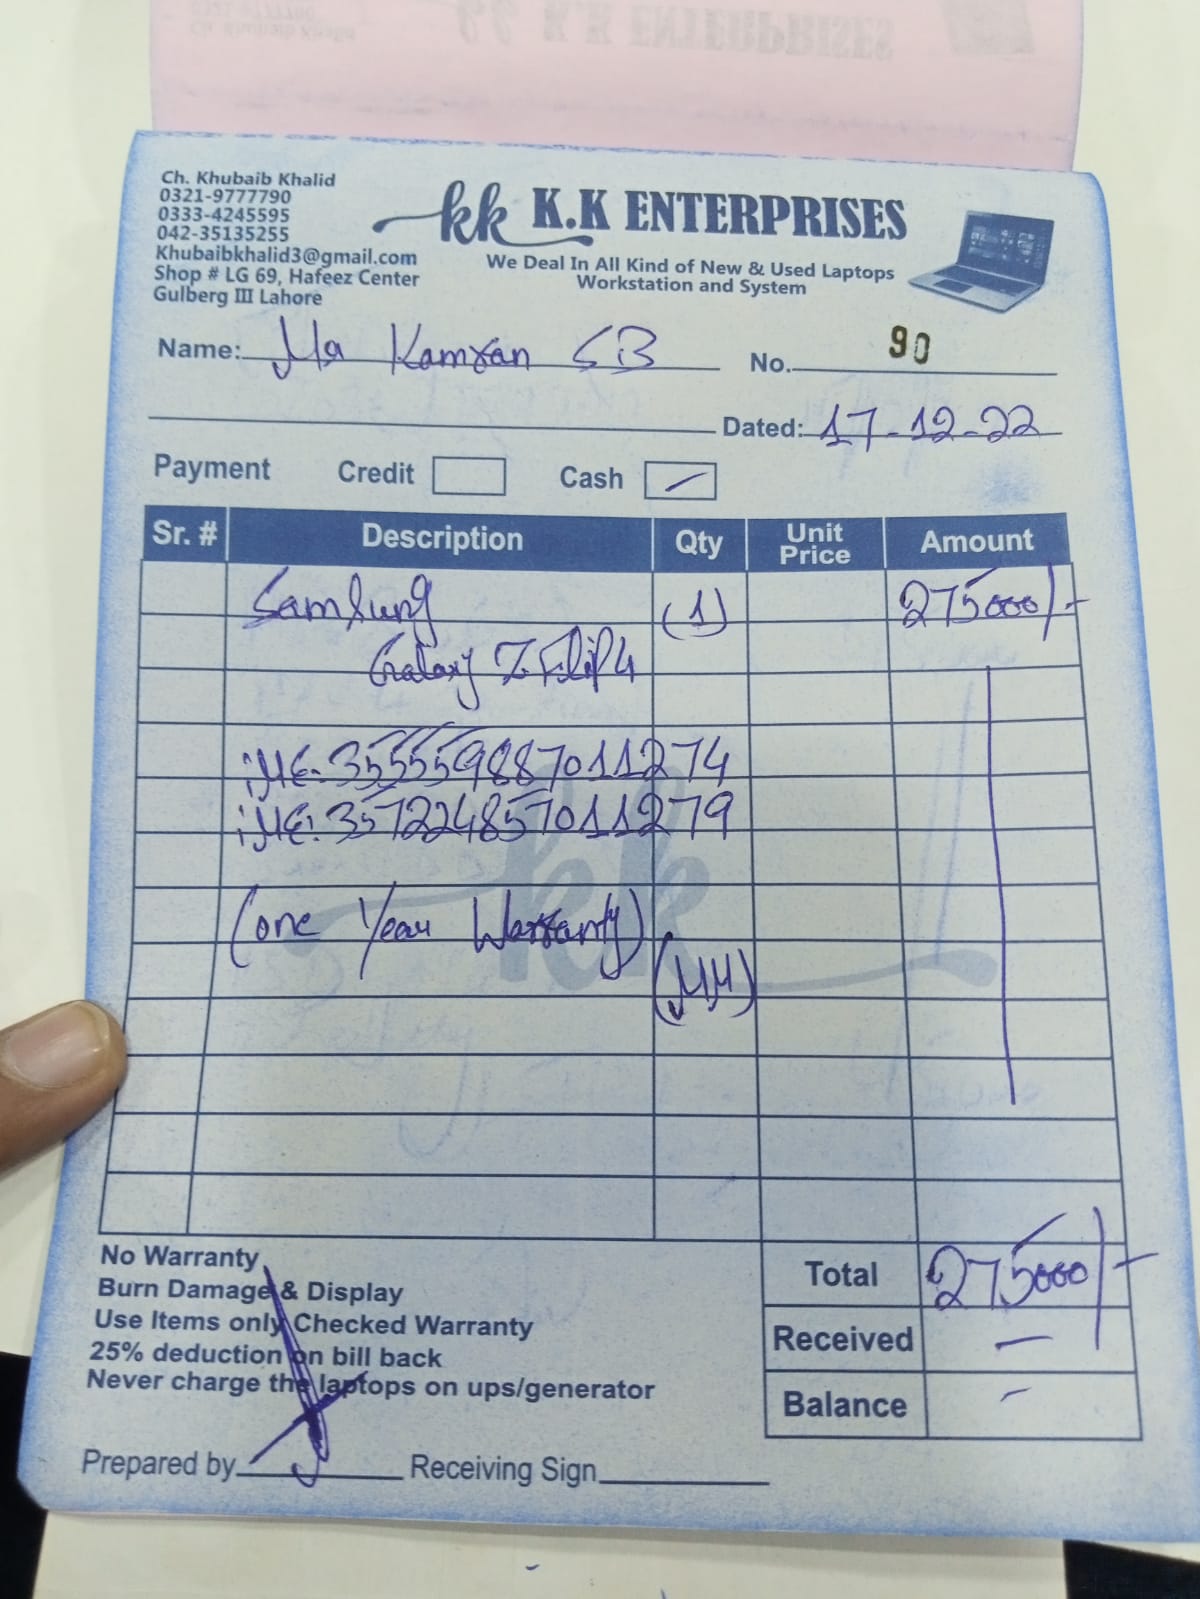 Ch. Khubaib Khalid
0321-9777790
0333-4245595
042-35135255
Khubaibkhalid3@gmail.com
Shop # LG 69, Hafeez Center
Gulberg III Lahore
kk K.K ENTERPRISES
We Deal In All Kind of New & Used Laptops
Workstation and System
Name: Kamran SB
No. 90
Dated: 17-12-22
Payment Credit Cash
Sr. # Description Qty Unit Price Amount
Samsung (1) 275000/-
Galaxy Z Flip 4
iME: 355559887011274
iME: 357224857011279
(one Year Warranty)
(MM)
No Warranty
Burn Damage & Display
Use Items only Checked Warranty
25% deduction on bill back
Never charge the laptops on ups/generator
Total 275000/-
Received —
Balance -
Prepared by
Receiving Sign